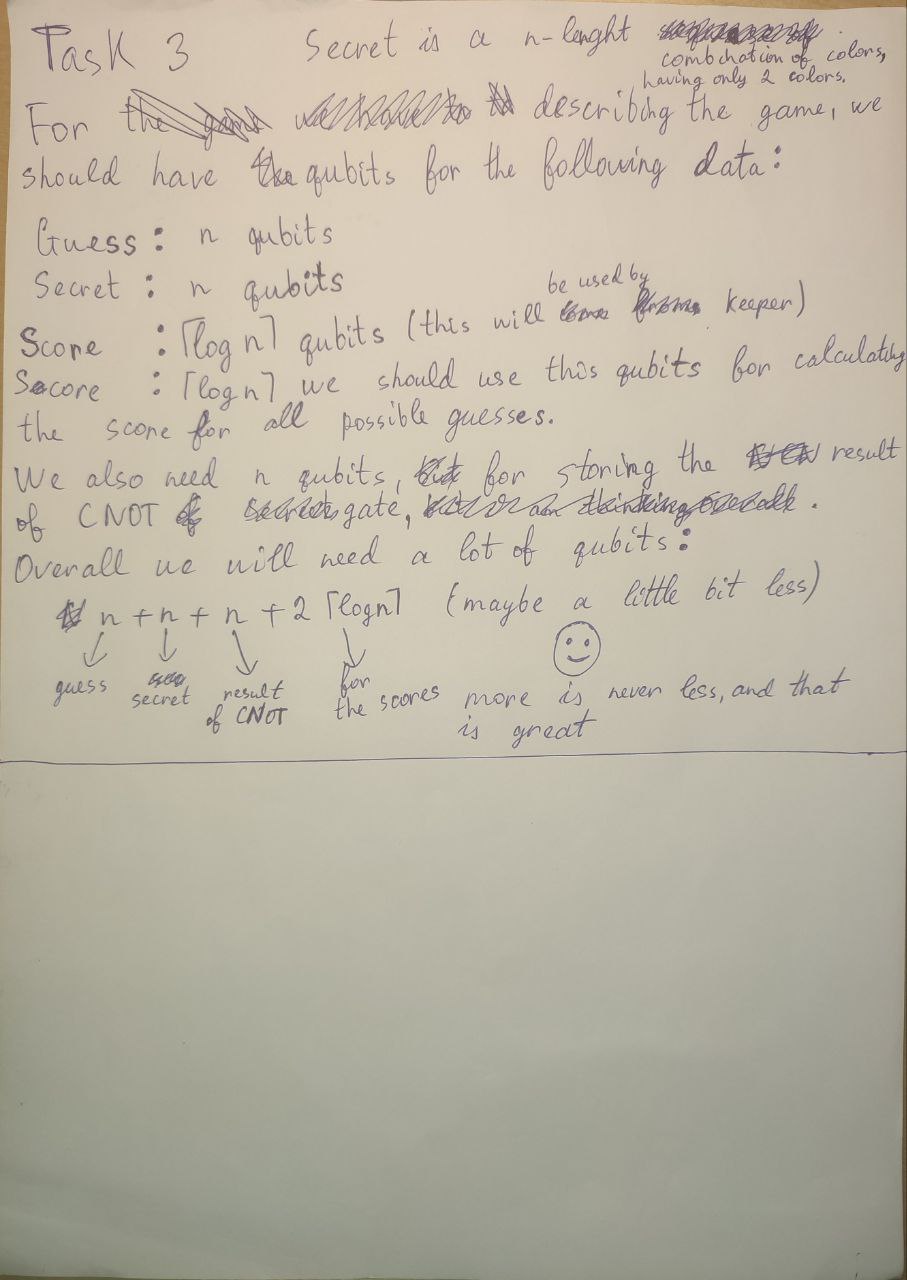 Task 3 Secret is a n-lenght combination of colors,
having only 2 colors.
For describing the game, we
should have qubits for the following data:
Guess: n qubits
Secret: n qubits
Score : ⌈log n⌉ qubits (this will be used by keeper)
Score : ⌈log n⌉ we should use this qubits for calculating
the score for all possible guesses.
We also need n qubits, for storing the result
of CNOT gate, .
Overall we will need a lot of qubits:
n + n + n + 2 ⌈log n⌉ (maybe a little bit less)
guess secret result of CNOT for the scores
more is never less, and that
is great